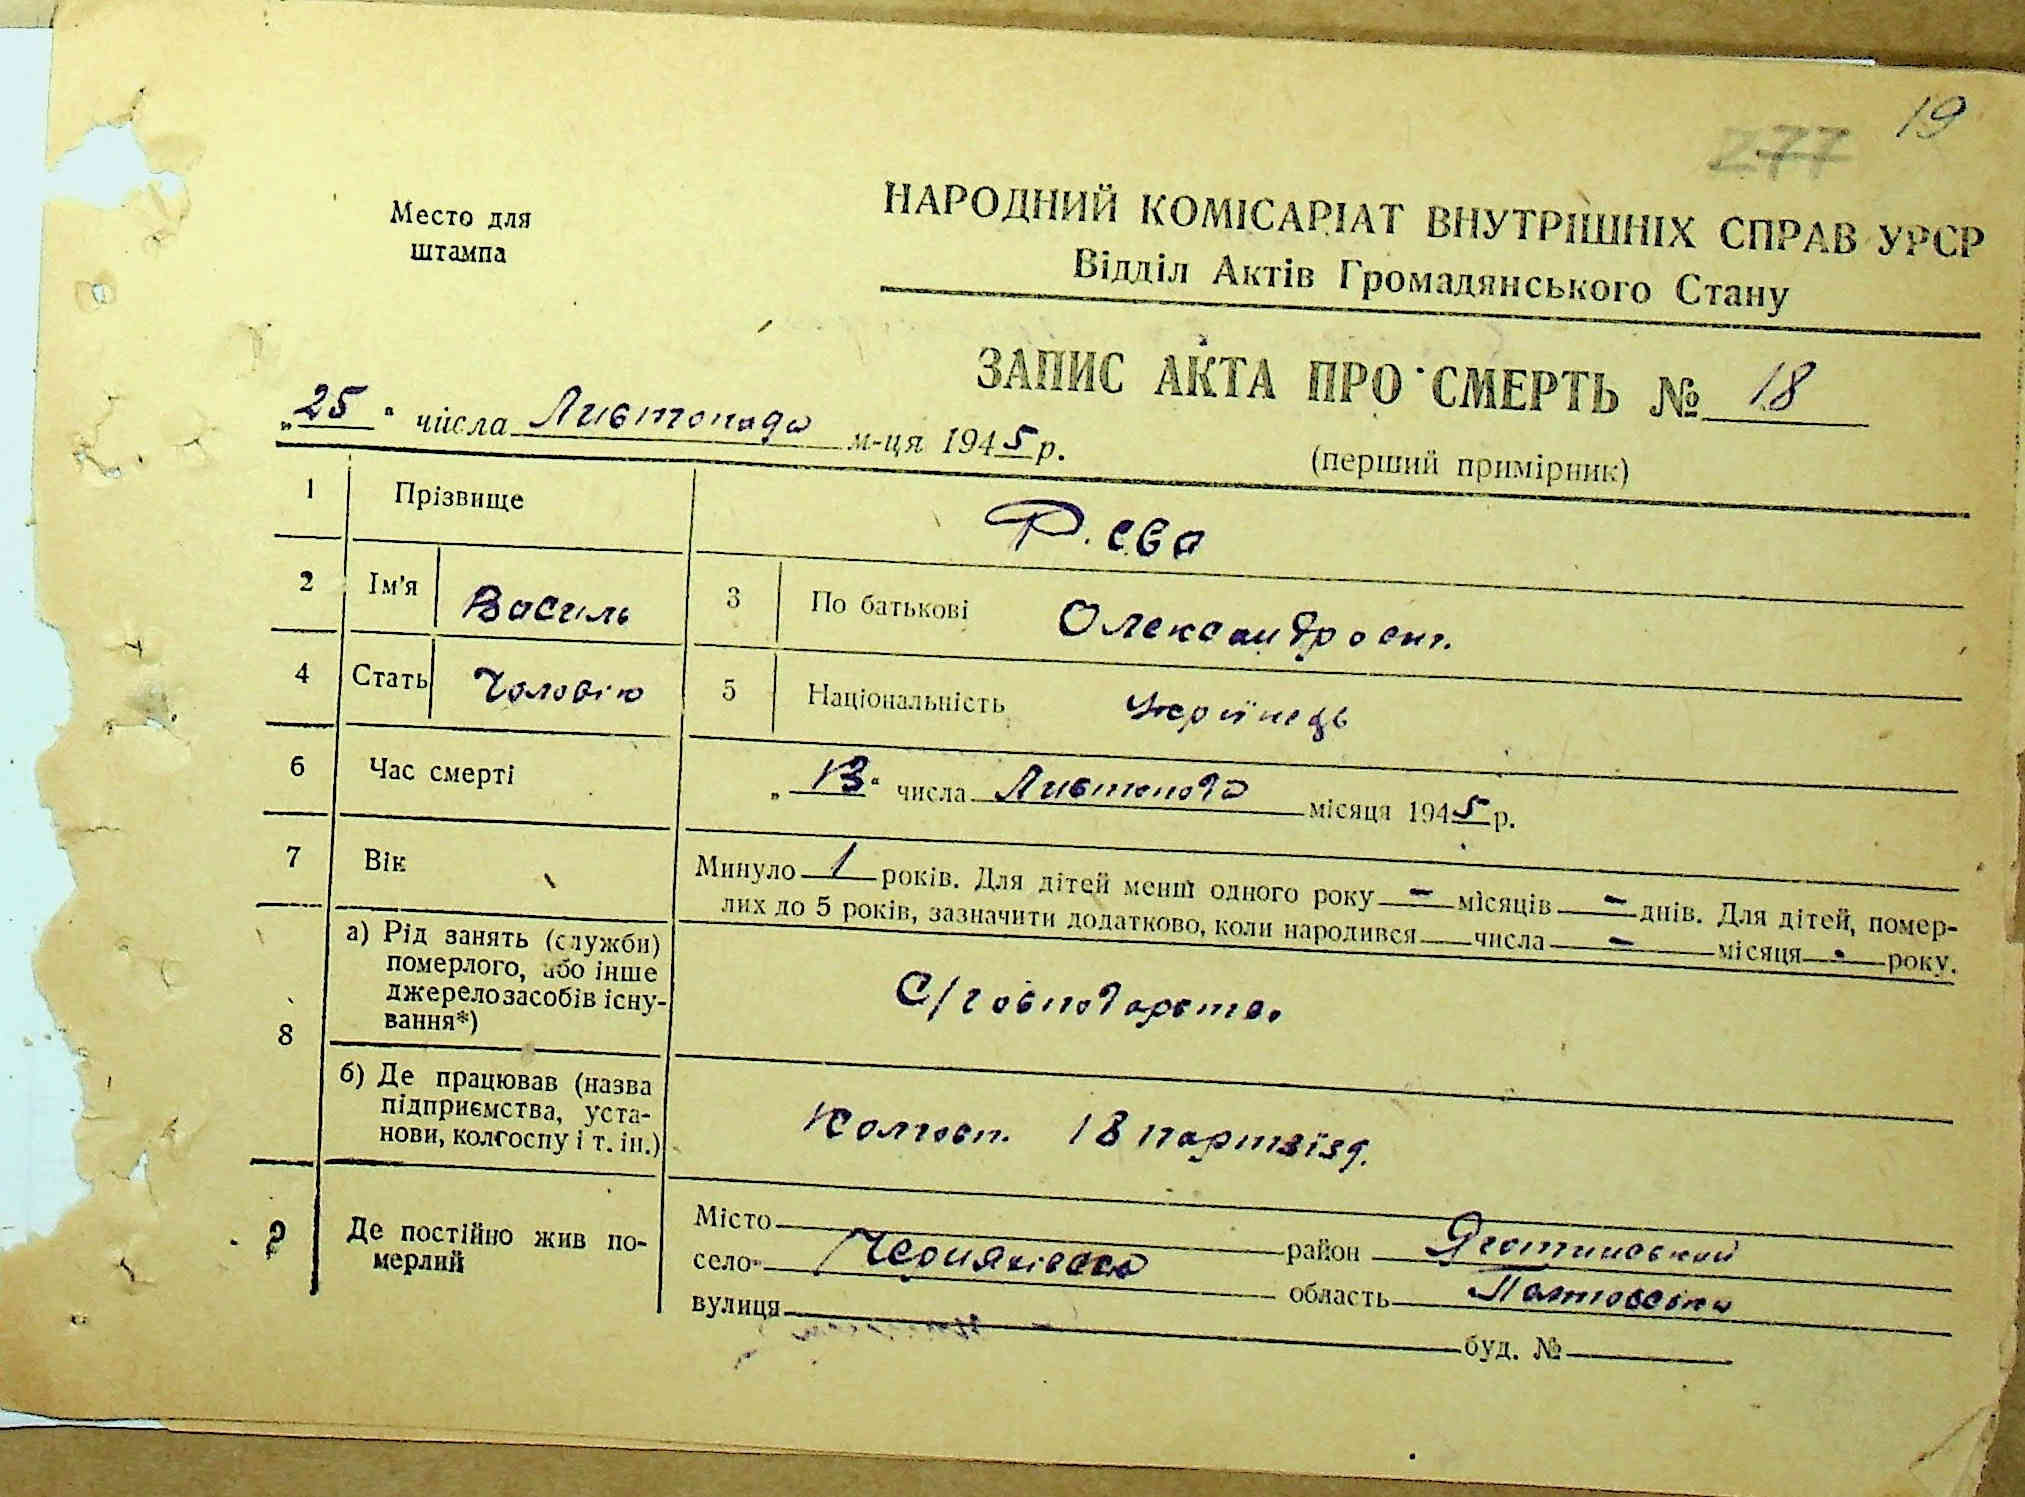 19
277
Место для
штампа
НАРОДНИЙ КОМІСАРІАТ ВНУТРІШНІХ СПРАВ УРСР
Відділ Актів Громадянського Стану
ЗАПИС АКТА ПРО СМЕРТЬ № 18
„25" числа Листопада м-ця 1945 р.
(перший примірник)
1 Прізвище Рєва
2 Ім'я Василь 3 По батькові Олександрович
4 Стать Чоловіч 5 Національність Українець
6 Час смерті „13" числа Листопада місяця 1945 р.
7 Вік Минуло 1 років. Для дітей менш одного року — місяців — днів. Для дітей, помер-
лих до 5 років, зазначити додатково, коли народився — числа — місяця — року.
8 а) Рід занять (служби)
померлого, або інше
джерело засобів існу-
вання*)
С/господарство
б) Де працював (назва
підприємства, уста-
нови, колгоспу і т. ін.)
Колгосп. 18 партзізд.
9 Де постійно жив по-
мерлий
Місто район Яготинський
село Черняхівка область Полтавська
вулиця буд. №